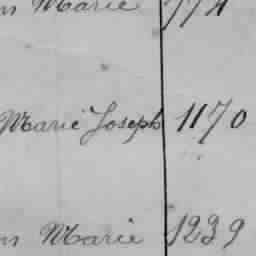 Marie 774
Marie Joseph 1170
Marie 1239